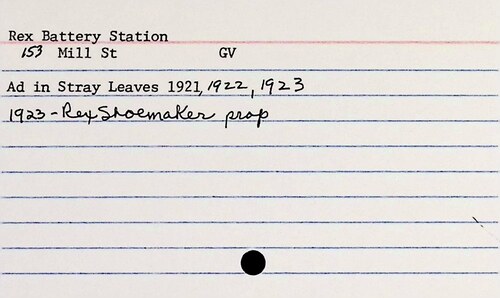 Rex Battery Station
153 Mill St GV
Ad in Stray Leaves 1921, 1922, 1923
1923-Rex Shoemaker prop